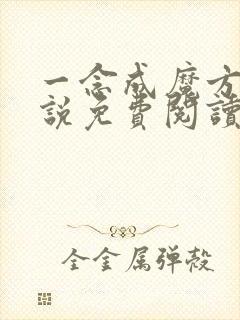 一念成魔方
說免費閱讀
全金属弹殼